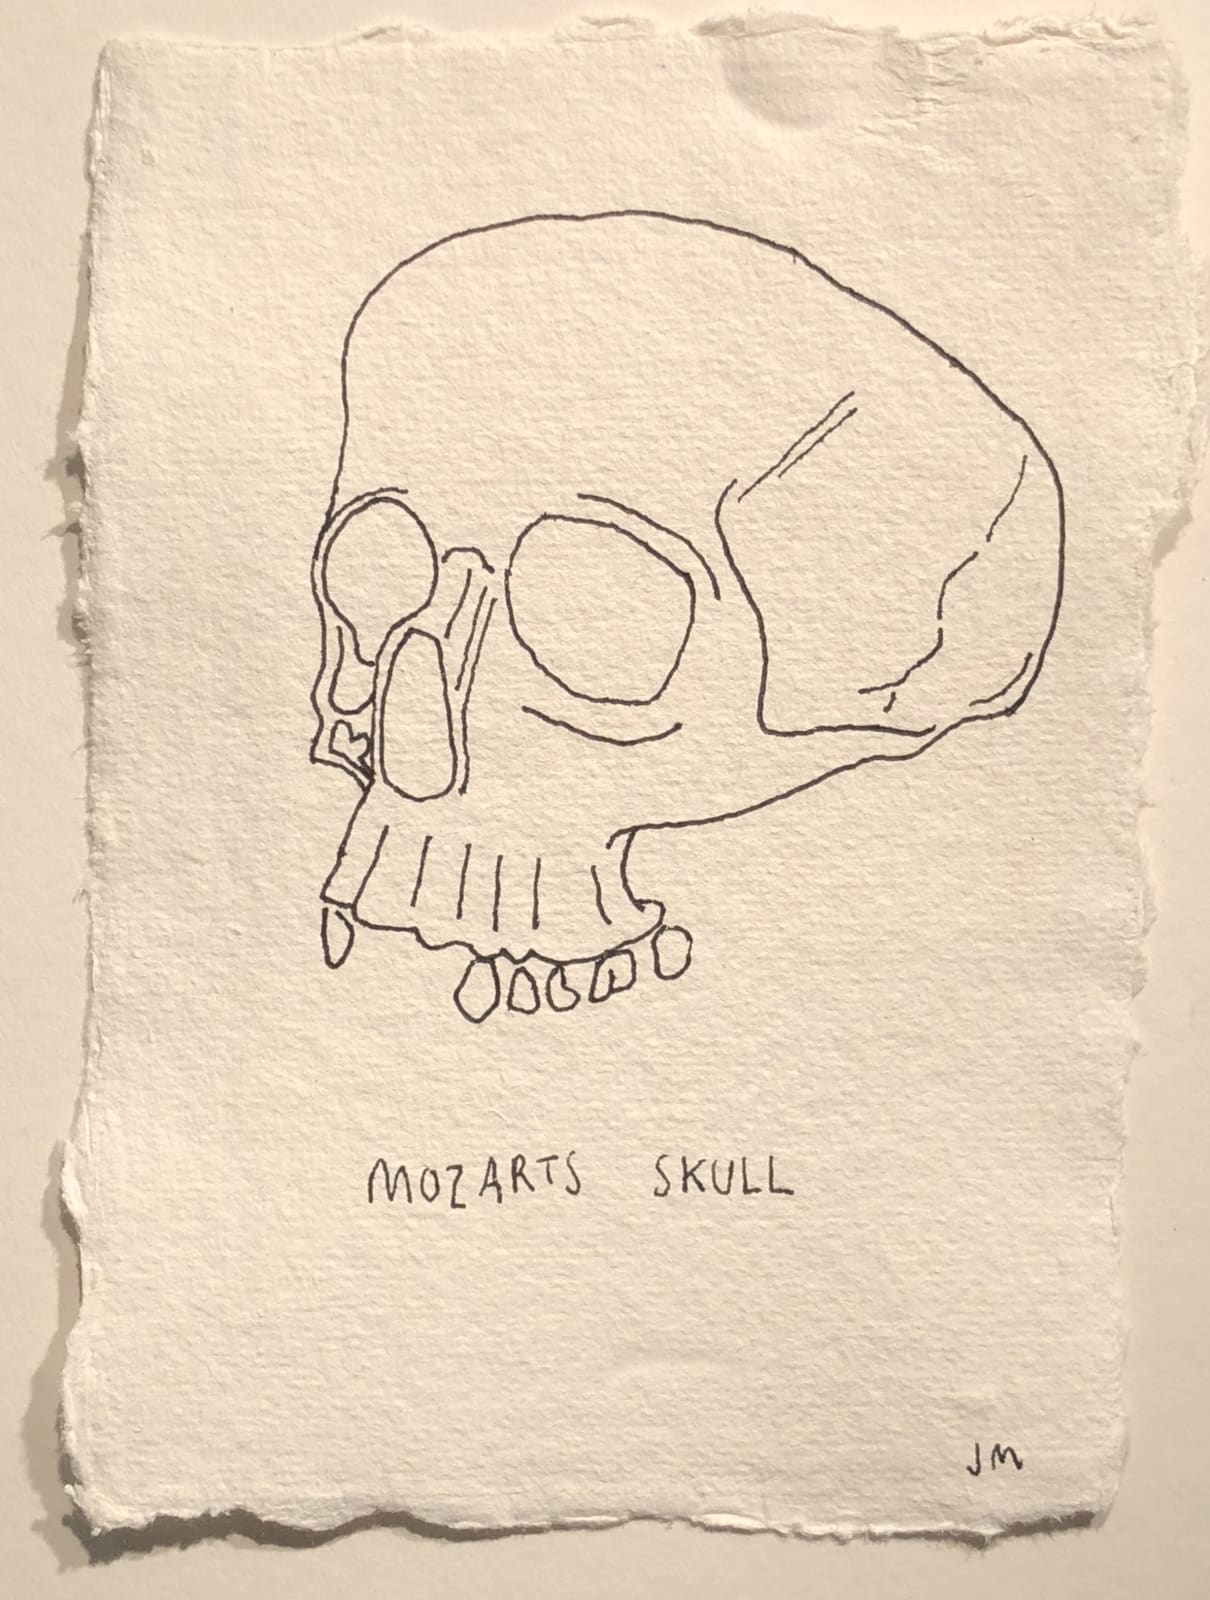 MOZARTS SKULL
JM